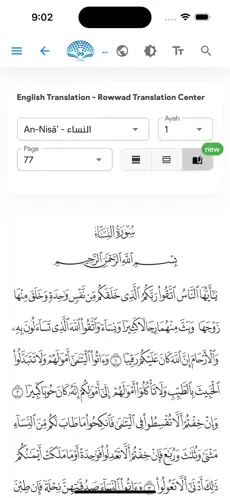 9:02
...
English Translation - Rowwad Translation Center
An-Nisā' - النساء
Ayah
1
Page
77
new
سُورَةُ النِّسَاءِ
بِسْمِ اللَّهِ الرَّحْمَٰنِ الرَّحِيمِ
يَٰٓأَيُّهَا ٱلنَّاسُ ٱتَّقُوا۟ رَبَّكُمُ ٱلَّذِى خَلَقَكُم مِّن نَّفْسٍ وَٰحِدَةٍ وَخَلَقَ مِنْهَا
زَوْجَهَا وَبَثَّ مِنْهُمَا رِجَالًا كَثِيرًا وَنِسَآءً وَٱتَّقُوا۟ ٱللَّهَ ٱلَّذِى تَسَآءَلُونَ بِهِۦ
وَٱلْأَرْحَامَ إِنَّ ٱللَّهَ كَانَ عَلَيْكُمْ رَقِيبًا ١ وَءَاتُوا۟ ٱلْيَتَٰمَىٰٓ أَمْوَٰلَهُمْ وَلَا تَتَبَدَّلُوا۟
ٱلْخَبِيثَ بِٱلطَّيِّبِ وَلَا تَأْكُلُوٓا۟ أَمْوَٰلَهُمْ إِلَىٰٓ أَمْوَٰلِكُمْ إِنَّهُۥ كَانَ حُوبًا كَبِيرًا ٢
وَإِنْ خِفْتُمْ أَلَّا تُقْسِطُوا۟ فِى ٱلْيَتَٰمَىٰ فَٱنكِحُوا۟ مَا طَابَ لَكُم مِّنَ ٱلنِّسَآءِ
مَثْنَىٰ وَثُلَٰثَ وَرُبَٰعَ فَإِنْ خِفْتُمْ أَلَّا تَعْدِلُوا۟ فَوَٰحِدَةً أَوْ مَا مَلَكَتْ أَيْمَٰنُكُمْ
ذَٰلِكَ أَدْنَىٰٓ أَلَّا تَعُولُوا۟ ٣ وَءَاتُوا۟ ٱلنِّسَآءَ صَدُقَٰتِهِنَّ نِحْلَةً فَإِن طِبْنَ